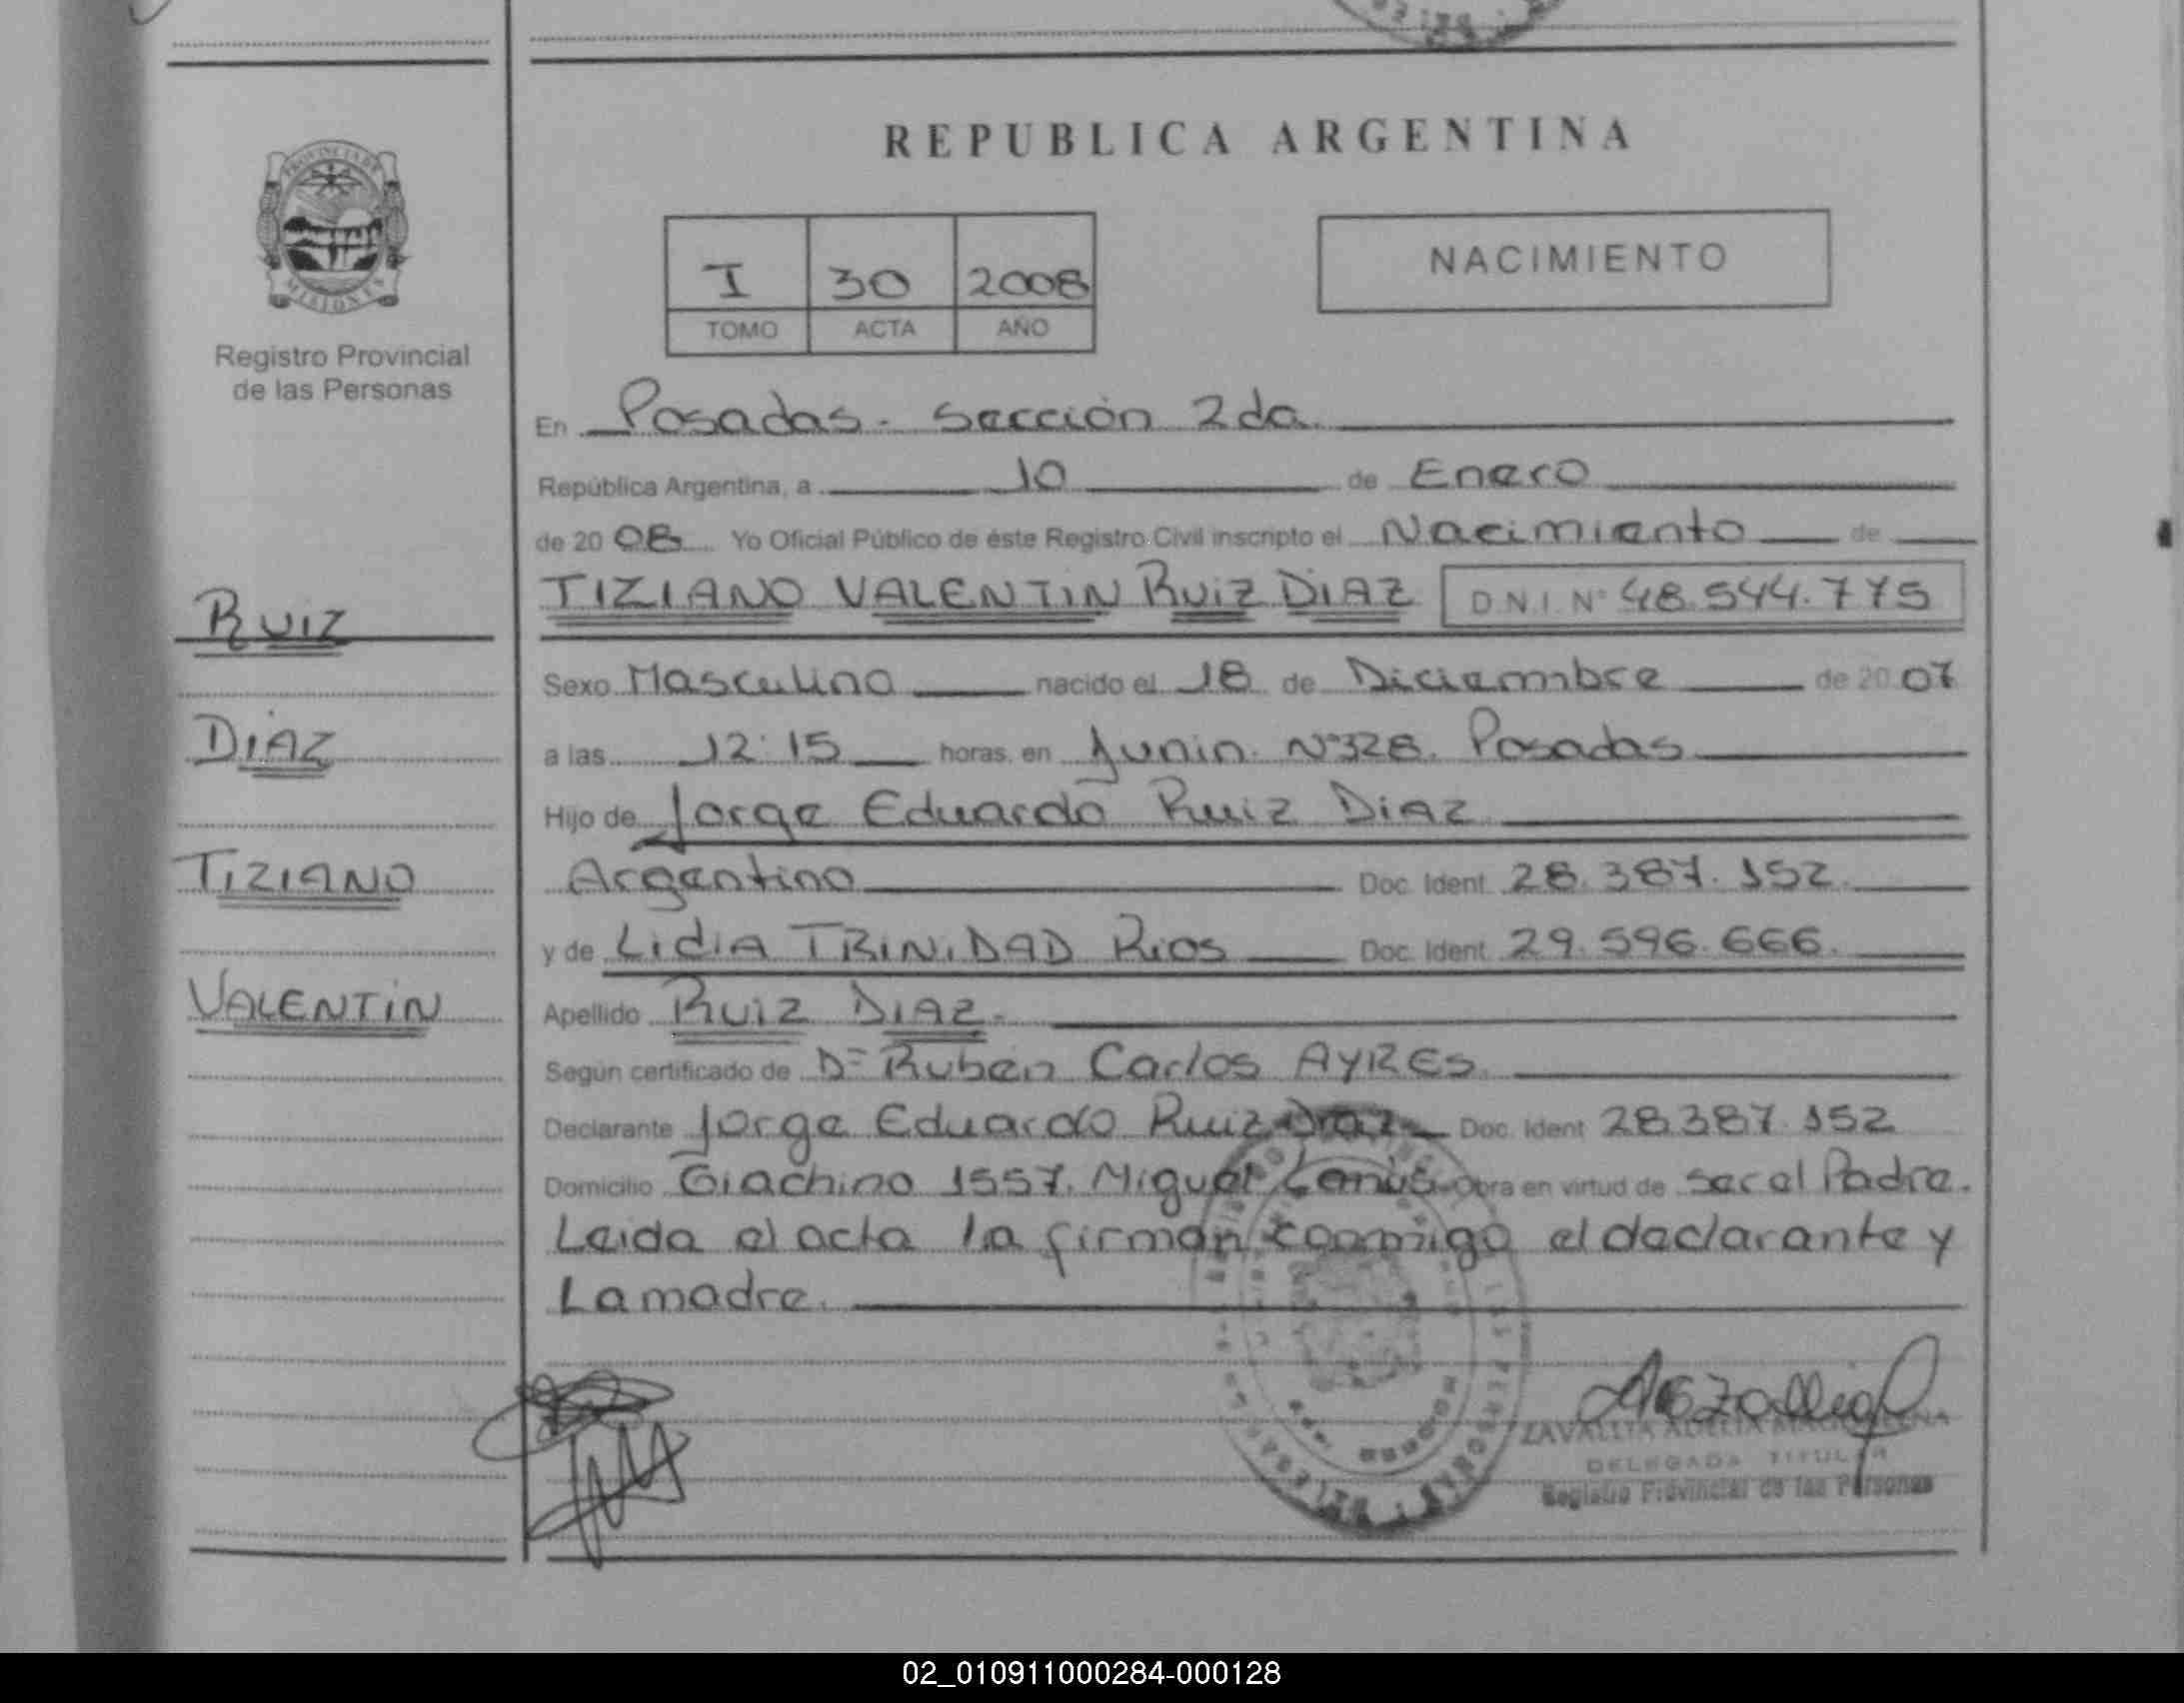 REPUBLICA ARGENTINA
PROVINCIA DE
MISIONES
Registro Provincial
de las Personas
I 30 2008
TOMO ACTA AÑO
NACIMIENTO
En Posadas - Sección 2da.
República Argentina, a 10 de Enero
de 20 08 Yo Oficial Público de éste Registro Civil inscripto el Nacimiento de
TIZIANO VALENTIN Ruiz DiAZ D.N.I. Nº 48.544.775
Sexo Masculino nacido el 18 de Diciembre de 20 07
a las 12:15 horas, en Junin Nº 328. Posadas
Hijo de Jorge Eduardo Ruiz DiAZ
Argentino Doc. Ident. 28.387.152.
y de LidiA TRINIDAD Rios Doc. Ident. 29.596.666.
Apellido RUIZ DIAZ.
Según certificado de Dr Rubén Carlos AYRES.
Declarante Jorge Eduardo Ruiz Diaz Doc. Ident 28387.152
Domicilio Giachino 1557. Miguel Lanús Obra en virtud de ser el Padre.
Leida el acta la firman conmigo el declarante y
La madre.
Ruiz
DiAZ
TIZIANO
VALENTIN
DELEGADA TITULAR
Registro Provincial de las Personas
02_010911000284-000128